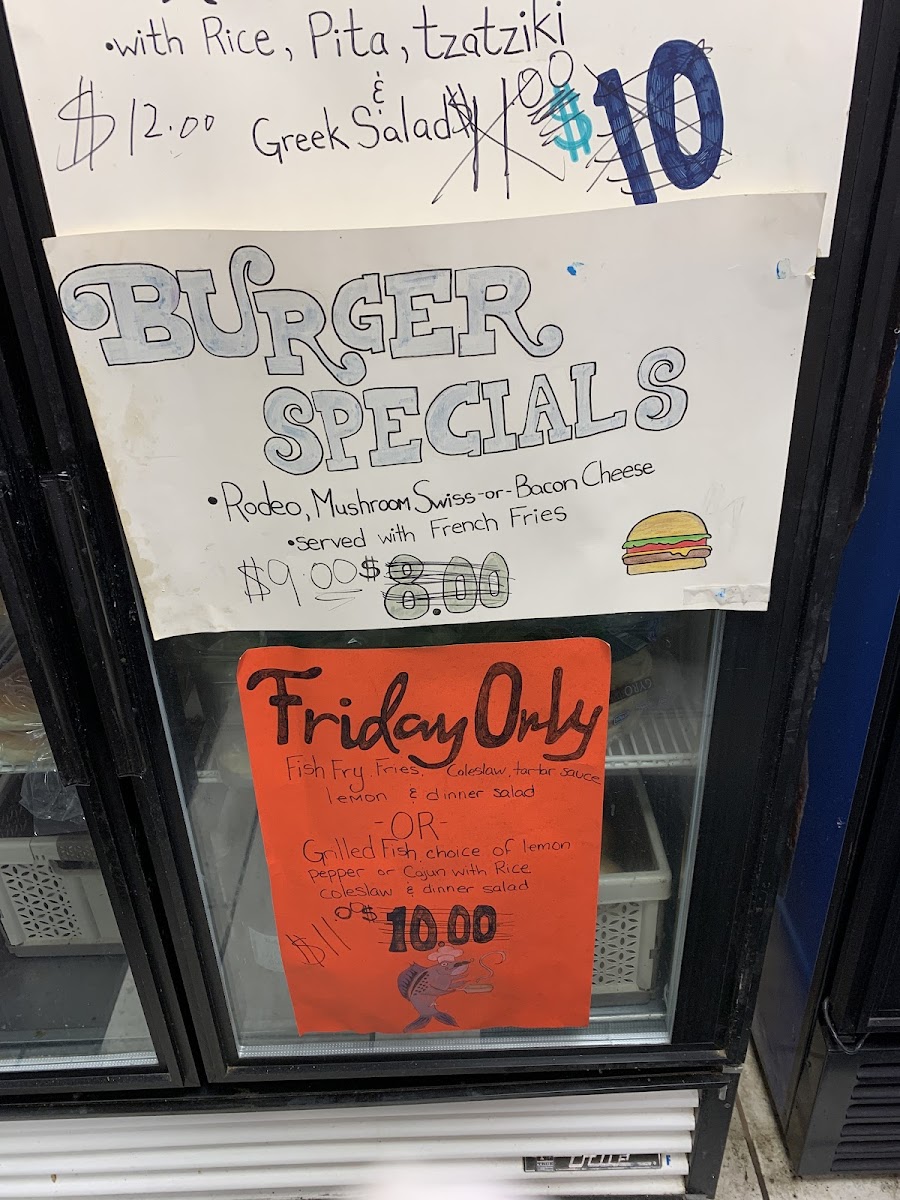 •with Rice, Pita, tzatziki
&
$12.00 Greek Salad $11.00 $10
BURGER
SPECIALS
•Rodeo, Mushroom Swiss-or-Bacon Cheese
•served with French Fries
$9.00 $8.00
Friday Only
Fish Fry, Fries, Coleslaw, tartar sauce
lemon & dinner salad
-OR-
Grilled Fish, choice of lemon
pepper or Cajun with Rice
coleslaw & dinner salad
$11.00 $10.00